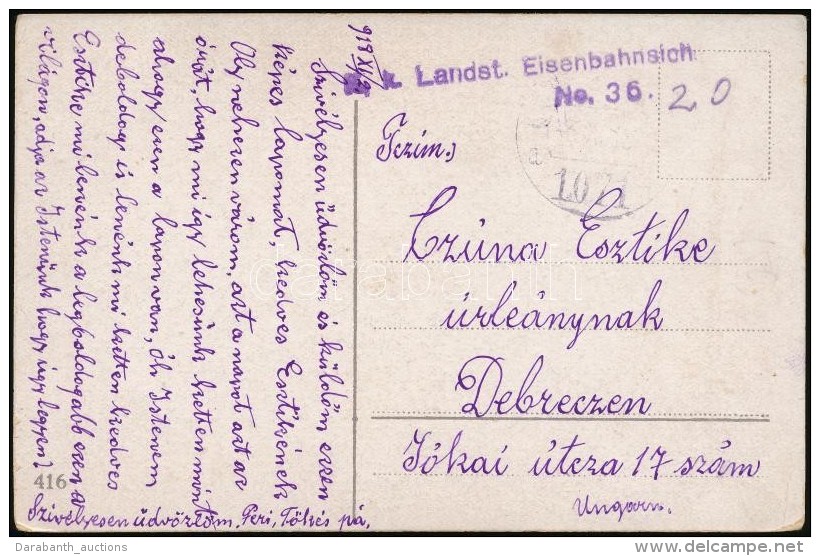 918 XI/2
Szivélyesen üdvözlöm és küldöm ezen
képes lapomat, kedves Esztikének
Oly nehezen várom, azt a napot azt az
órát, hogy mi úgy lehesünk ketten mint
ahogy ezen a lapon van, óh Istenem
de boldog is lenénk mi ketten kedves
Esztike mi lenénk a legboldogabb ezen a
világon, adja az Istenünk hogy úgy legyen?
Szivélyesen üdvözlöm, Feri, pá,
416
k. Landst. Eisenbahnsich
No. 36.
20
Tczim.)
Czúna Esztike
úrleánynak
Debreczen
Jókai útcza 17 szám
Ungarn.
darabanth
Darabanth_auctions
delcampe.net